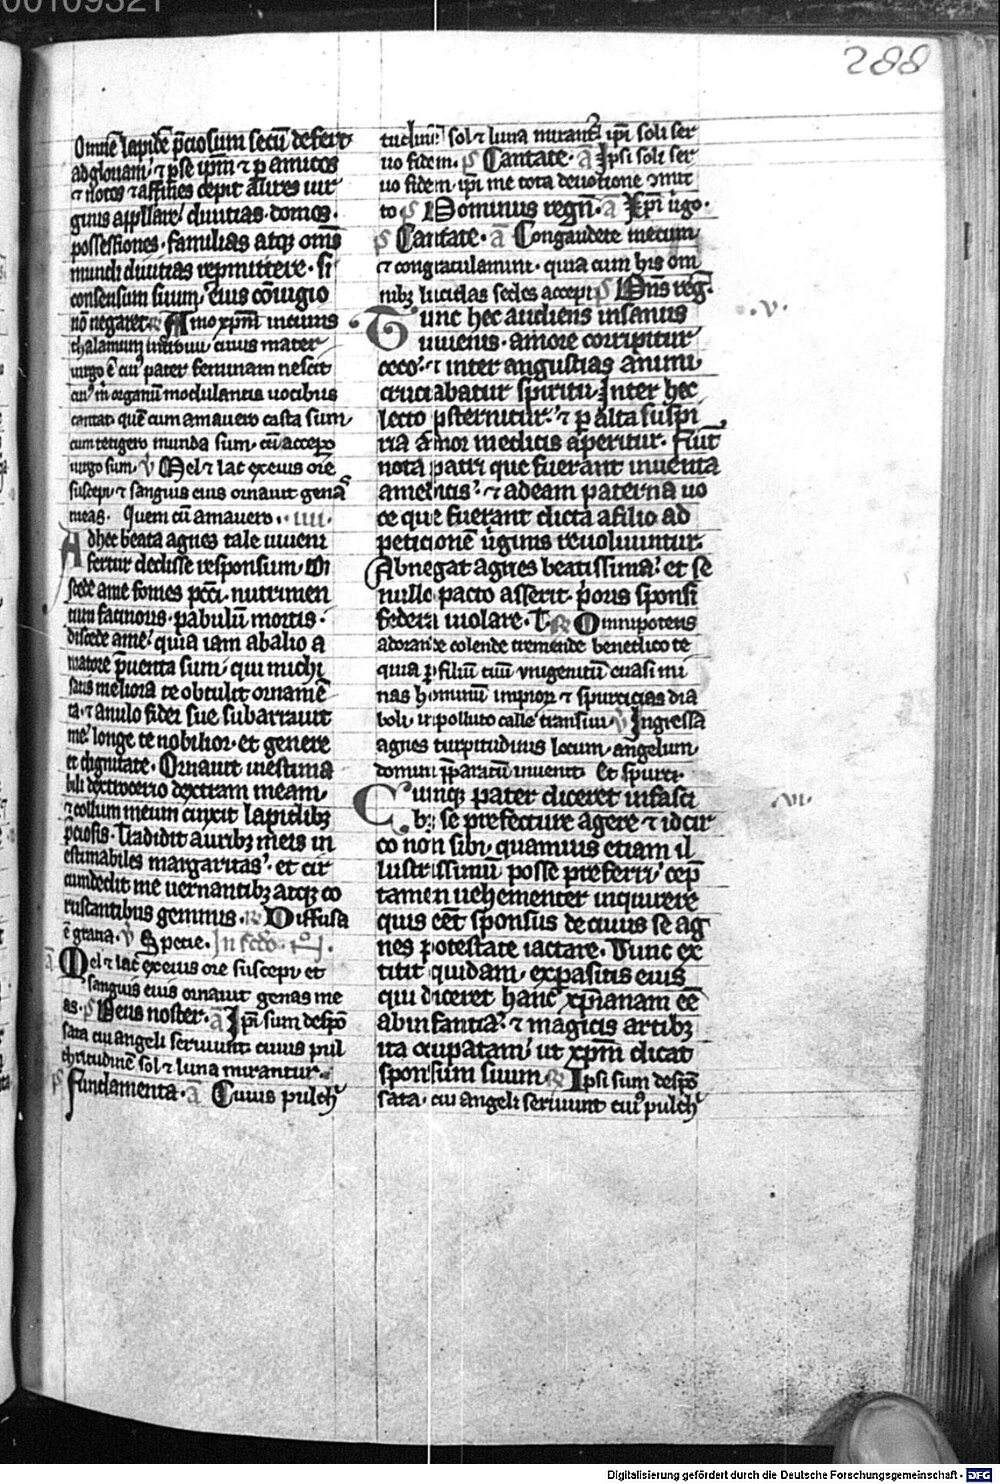 00109321
288
Omnē lapidē p̄ciosum secū defert
ad gloriam· ⁊ ꝑ se ipm̄ ⁊ ꝑ amicos
⁊ notos ⁊ affines cepit aures uir
ginis appllare· diuitias· domos·
possessiones· familias atqꝫ om̄s
mundi diuitias repmittere· si
consensum suum eius cōiugio
nō negaret ℞ Amo xpm̄ in cuius
thalamum introiui cuius mater
uirgo ē cuiꝰ pater feminam nescit
cuiꝰ m̄ organū modulantis uocibus
cantat quē cum amauero casta sum
cum tetigero munda sum· cū accepero
uirgo sum· ℣ Mel ⁊ lac ex eius ore
suscepi ⁊ sanguis eius ornauit genas
meas· Quem cū amauero· ·iiii·
Ad hec beata agnes tale iuueni
fertur dedisse responsum Di
scede a me fomes pcc̄i· nutrimen
tum facinoris· pabulū mortis·
discede a me· quia iam ab alio a
matore p̄uenta sum· qui michi
satis meliora te obtulit orname
ta· ⁊ anulo fidei sue subarrauit
me· longe te nobilior· et genere
et dignitate· Ornauit inestima
bili dextrocerio dextram meam
⁊ collum meum cinxit lapidibꝫ
p̄ciosis· Tradidit auribꝫ meis in
estimabiles margaritas· et cir
cumdedit me uernantibꝫ atqꝫ co
ruscantibus gemmis· ℞ Diffusa
ē gratia· ℣ Specie·
ā Mel ⁊ lac ex eius ore suscepi et
sanguis eius ornauit genas me
as· p̄s Deus noster· ā Ipi sum despō
sata cui angeli seruiunt cuius pul
chritudinē sol ⁊ luna mirantur
p̄s Fundamenta· ā Cuius pulchͥ
tudinē sol ⁊ luna mirant᷑ ipi soli ser
uo fidem· p̄s Cantate· ā Ipsi soli ser
uo fidem· ipi me tota deuotione ꝯmit
to p̄s Dominus regn̄· ā Xpi uirgo·
p̄s Cantate· ā Congaudete mecum
⁊ congratulamini· quia cum his om
nibꝫ lucidas sedes accepi p̄s Dn̄s reg̅·
Tunc hec audiens insanus ·v·
iuuenis· amore corripitur
ceco· ⁊ inter angustias animi
cruciabatur spiritu· Inter hec
lecto ꝓsternitur· ⁊ ꝑ alta suspi
ria amor medicis aperitur· Fiūt
nota patri que fuerant inuenta
a medicis· ⁊ adeam paterna uo
ce que fuerant dicta a filio ad
peticionē uirginis reuoluuntur·
Abnegat agnes beatissima· et se
nullo pacto asserit· p̄oris sponsi
federa uiolare· T· ℞ Omnipotens
adorande colende tremende benedico te
quia ꝑ filiū tuū unigenitū euasi mi
nas hominū impior̄ ⁊ spurcicias dia
boli· impolluto calle transiui ℣ Ingressa
agnes turpitudinis locum· angelum
domini p̄paratū inuenit· Et spurci·
Cumqꝫ pater diceret in fasci ·vi·
bꝫ se prefecture agere ⁊ idcir
co non sibi· quamuis etiam il
lustrissimū posse preferri· cep̄
tamen uehementer inquirere
quis eēt sponsus de cuius se ag
nes potestate iactare· Tunc ex
titit quidam· ex parasitis eius
qui diceret hanc xp̄ianam eē
ab infantia· ⁊ magicis artibꝫ
ita occupatam· ut xpm̄ dicat
sponsum suum ℞ Ipsi sum despō
sata· cui angeli seruiunt cuiꝰ pulchͥ
Digitalisierung gefördert durch die Deutsche Forschungsgemeinschaft - DFG